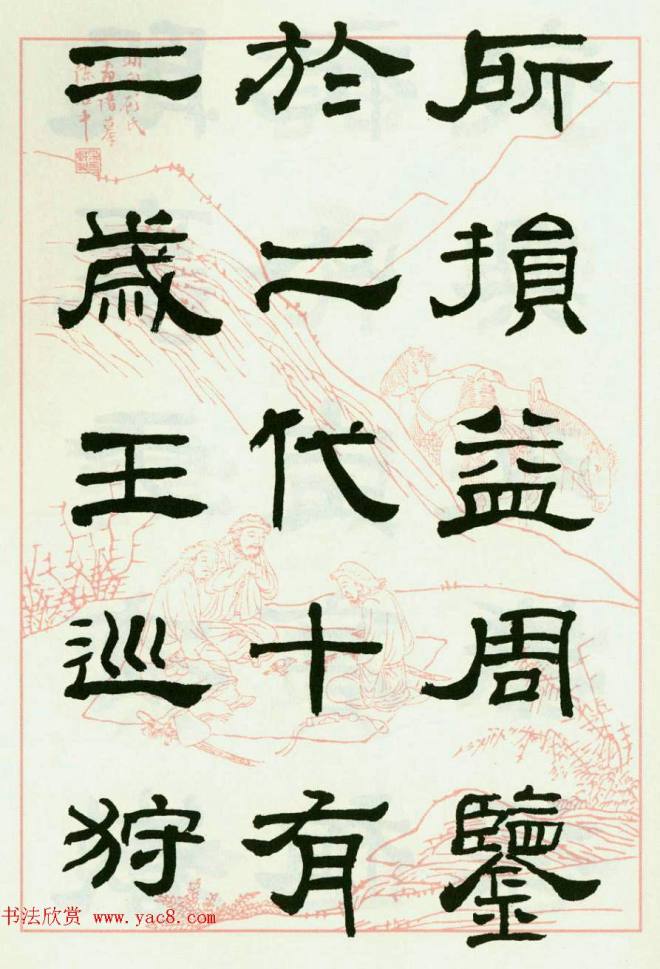 所損益周鑒
於二代十有
二歲王巡狩
书法欣赏 www.yac8.com